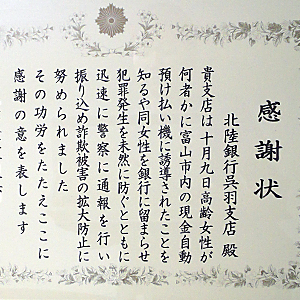 感謝状
北陸銀行呉羽支店 殿
貴支店は十月九日高齢女性が
何者かに富山市内の現金自動
預け払い機に誘導されたことを
知るや同女性を銀行に留まらせ
犯罪発生を未然に防ぐとともに
迅速に警察に通報を行い
振り込め詐欺被害の拡大防止に
努められました
その功労をたたえここに
感謝の意を表します